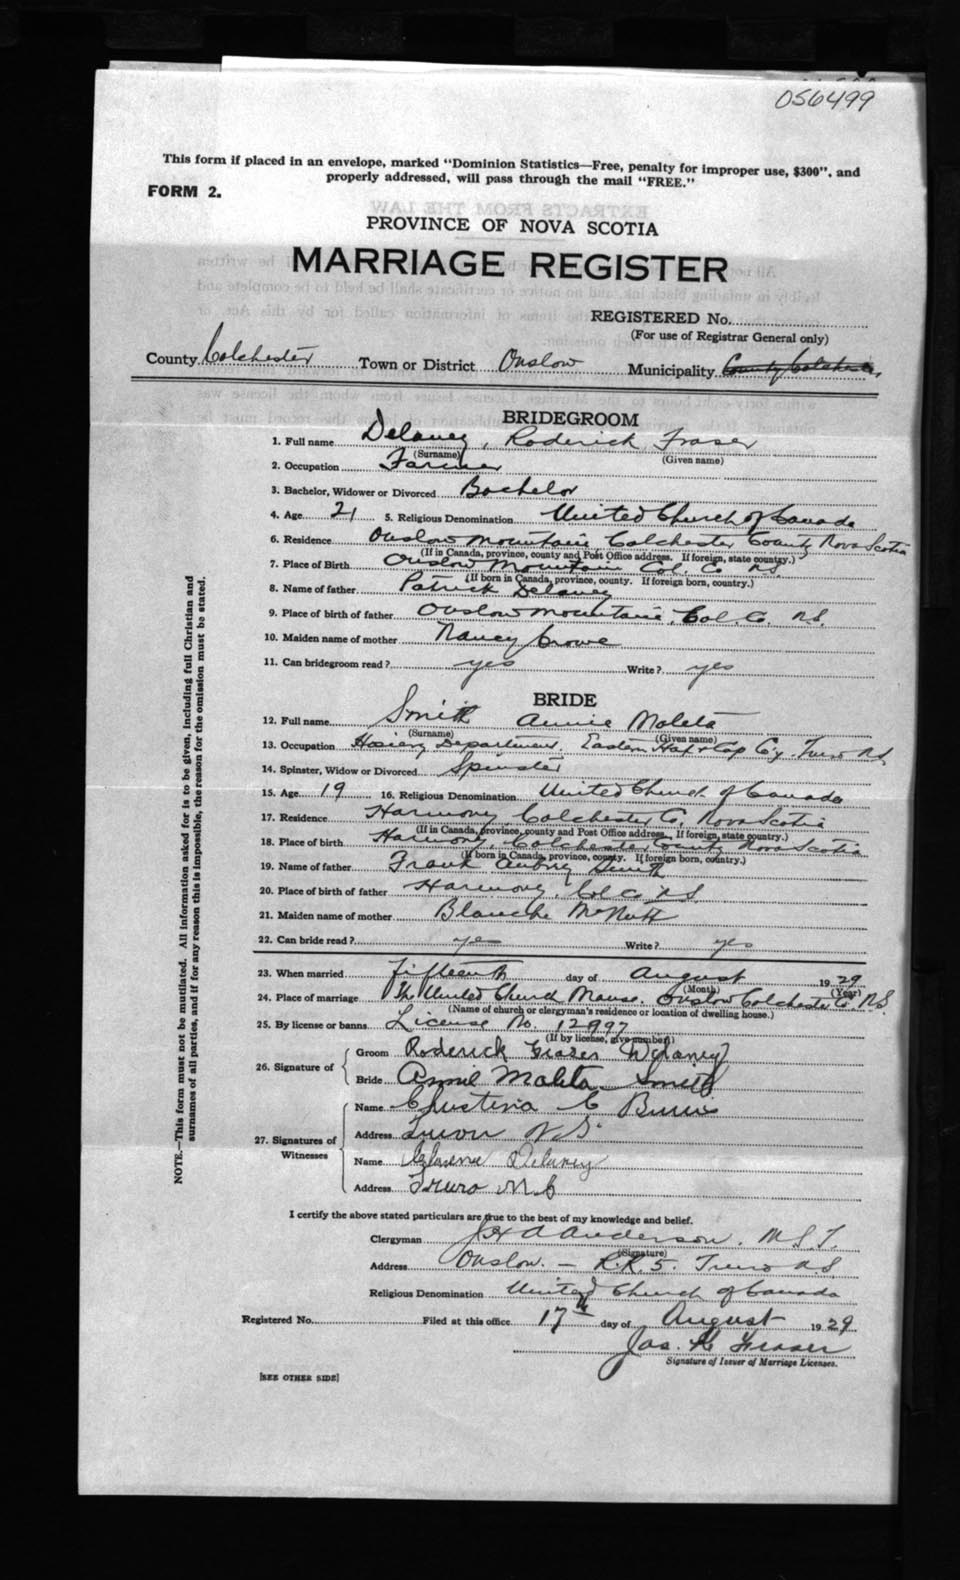 056499
This form if placed in an envelope, marked "Dominion Statistics—Free, penalty for improper use, $300", and
properly addressed, will pass through the mail "FREE."
FORM 2.
PROVINCE OF NOVA SCOTIA
MARRIAGE REGISTER
REGISTERED No.
(For use of Registrar General only)
County Colchester Town or District Onslow Municipality County Colchester
BRIDEGROOM
1. Full name Delaney, Roderick Fraser
(Surname) (Given name)
2. Occupation Farmer
3. Bachelor, Widower or Divorced Bachelor
4. Age 21 5. Religious Denomination United Church of Canada
6. Residence Onslow Mountain Colchester County Nova Scotia
(If in Canada, province, county and Post Office address. If foreign, state country.)
7. Place of Birth Onslow Mountain Col. Co. N.S.
(If born in Canada, province, county. If foreign born, country.)
8. Name of father Patrick Delaney
9. Place of birth of father Onslow Mountain, Col. Co. N.S.
10. Maiden name of mother Nancy Crowe
11. Can bridegroom read? yes Write? yes
BRIDE
12. Full name Smith Annie Maleta
(Surname) (Given name)
13. Occupation Hosiery Department, Eastern Hat & Cap Cy. Truro N.S.
14. Spinster, Widow or Divorced Spinster
15. Age 19 16. Religious Denomination United Church of Canada
17. Residence Harmony Colchester Co. Nova Scotia
(If in Canada, province, county and Post Office address. If foreign, state country.)
18. Place of birth Harmony, Colchester County Nova Scotia
(If born in Canada, province, county. If foreign born, country.)
19. Name of father Frank Aubrey Smith
20. Place of birth of father Harmony, Col Co N.S.
21. Maiden name of mother Blanche McNutt
22. Can bride read? yes Write? yes
23. When married Fifteenth day of August 1929
(Month) (Year)
24. Place of marriage The United Church Manse. Onslow Colchester Co. N.S.
(Name of church or clergyman's residence or location of dwelling house.)
25. By license or banns License No. 12997
(If by license, give number)
26. Signature of
Groom Roderick Frazer Delaney
Bride Annie Maleta Smith
27. Signatures of Witnesses
Name Christena C
Address Truro N.S.
Name Delaney
Address Truro N.S
I certify the above stated particulars are true to the best of my knowledge and belief.
Clergyman A Anderson.
(Signature)
Address Onslow. — R.R. 5. Truro N.S.
Religious Denomination United Church of Canada
Registered No. Filed at this office 17th day of August 1929
Jas. K Fraser
Signature of Issuer of Marriage Licenses.
[SEE OTHER SIDE]
NOTE.—This form must not be mutilated. All information asked for is to be given, including full Christian and
surnames of all parties, and if for any reason this is impossible, the reason for the omission must be stated.